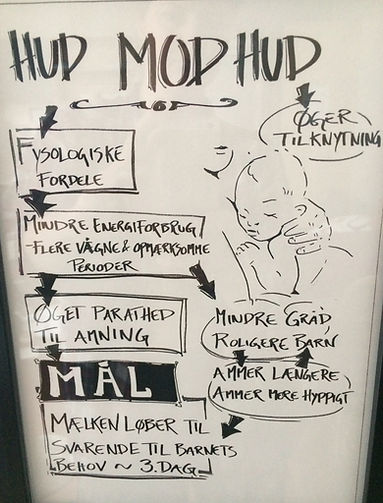 HUD MOD HUD
ØGER
TILKNYTNING
FYSOLOGISKE
FORDELE
MINDRE ENERGIFORBRUG
-FLERE VÅGNE & OPMÆRKSOMME
PERIODER
ØGET PARATHED
TIL AMNING
MINDRE GRÅD,
ROLIGERE BARN
AMMER LÆNGERE
AMMER MERE HYPPIGT
MÅL
MÆLKEN LØBER TIL
SVARENDE TIL BARNETS
BEHOV ~ 3. DAG